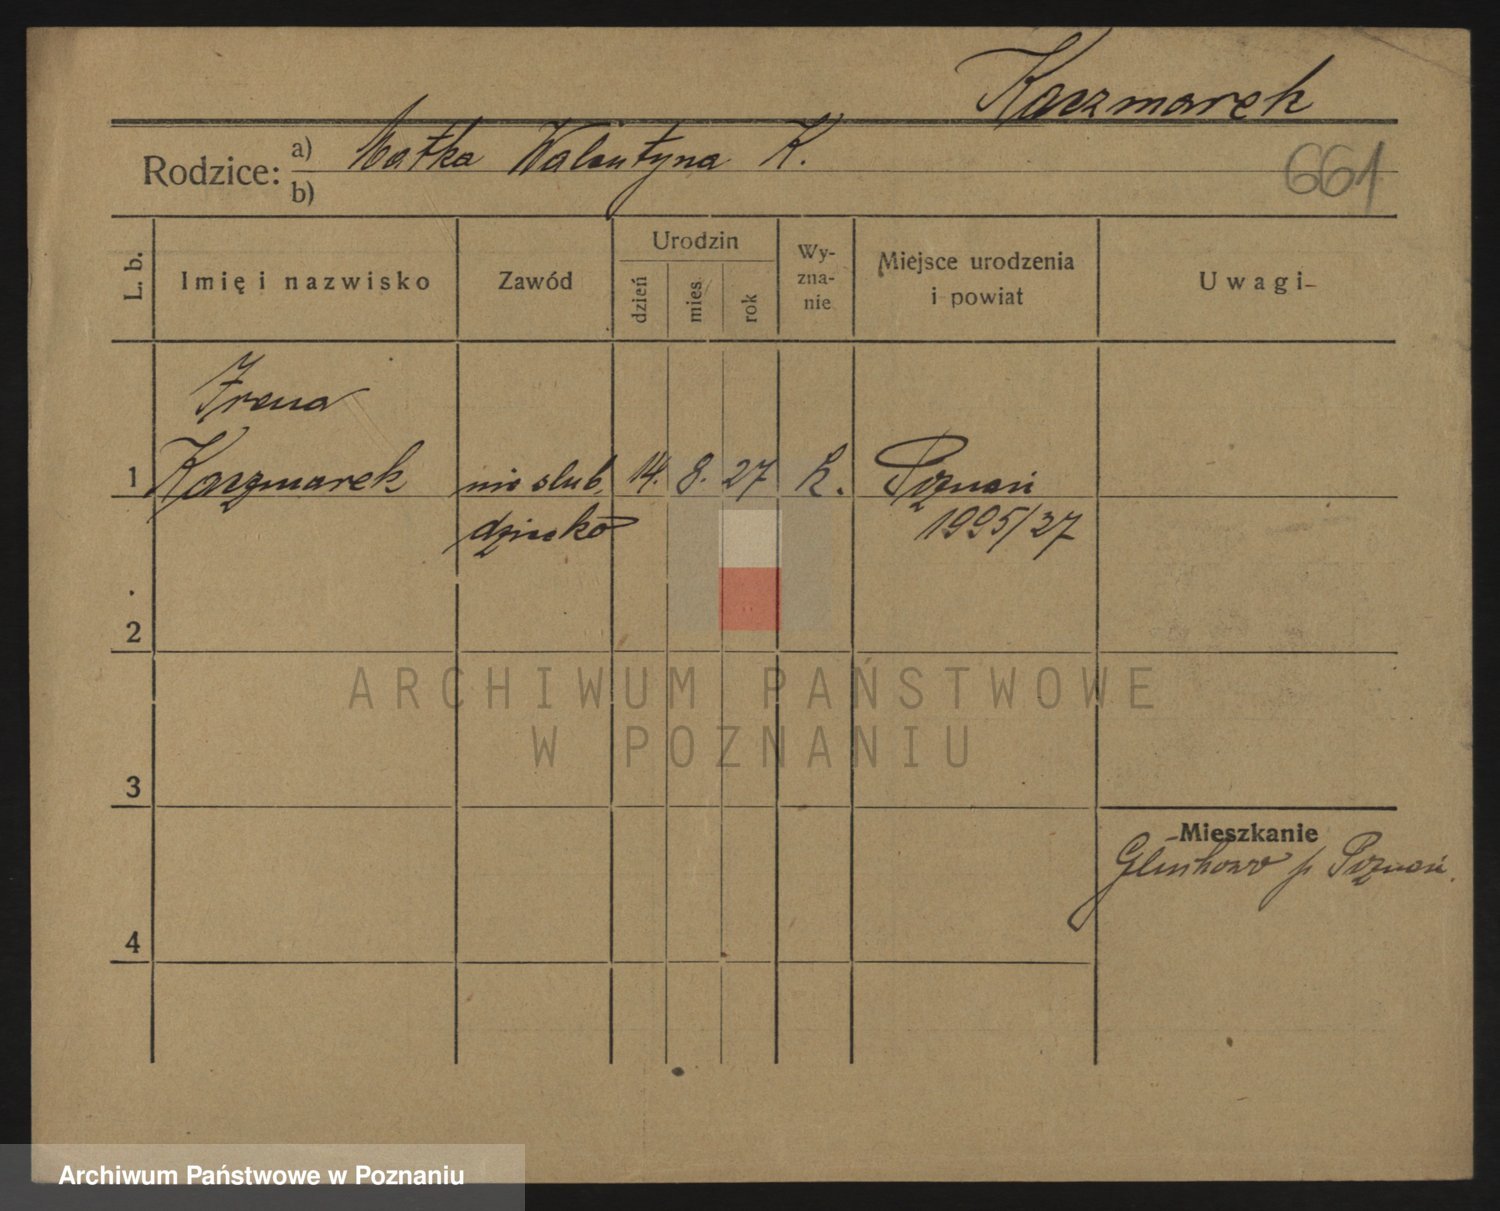 Kaczmarek
Rodzice: a) Matka Walentyna K.
b)
661
L. b.
Imię i nazwisko
Zawód
Urodzin
dzień
mies
rok
Wy-
zna-
nie
Miejsce urodzenia
i powiat
Uwagi
Irena
1 Kaczmarek nieślub. 14. 8. 27 k. Poznań
dziecko 1995/27
2
ARCHIWUM PAŃSTWOWE
W POZNANIU
3
Mieszkanie
p Poznań.
4
Archiwum Państwowe w Poznaniu